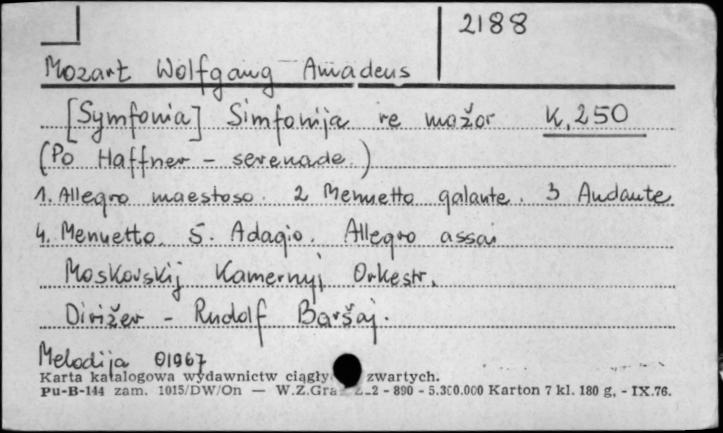 2188
Mozart Wolfgang Amadeus
[Symfonia] Simfonija re mažor K. 250
(Po Haffner - serenade)
1. Allegro maestoso. 2 Menuetto galante. 3 Andante
4. Menuetto. 5. Adagio. Allegro assai
Moskovskij Kamernyj Orkestr.
Dirižer - Rudolf Baršaj.
Melodija 01967
Karta katalogowa wydawnictw ciągły zwartych.
Pu-B-144 zam. 1015/DW/On — W.Z.Graf. Z-2 - 890 - 5.300.000 Karton 7 kl. 180 g. - IX.76.